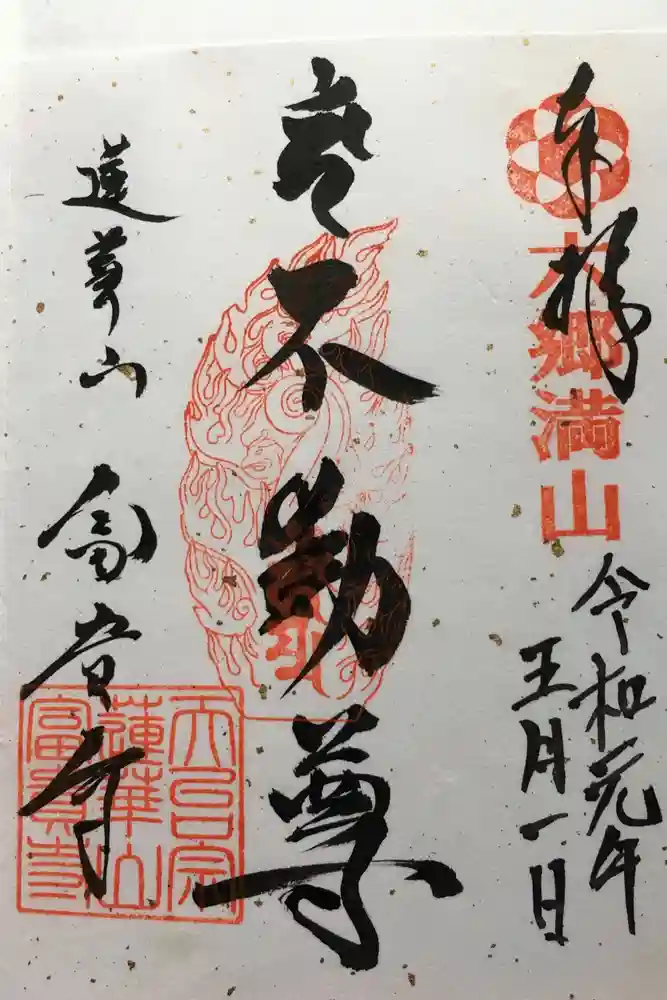 奉拝
六郷満山
令和元年
五月一日
不動尊
蓮華山
富貴寺
天台宗
蓮華山
富貴寺